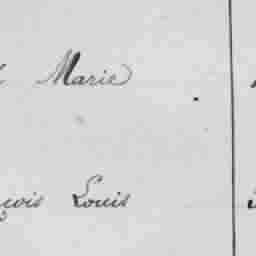 Marie
çois Louis